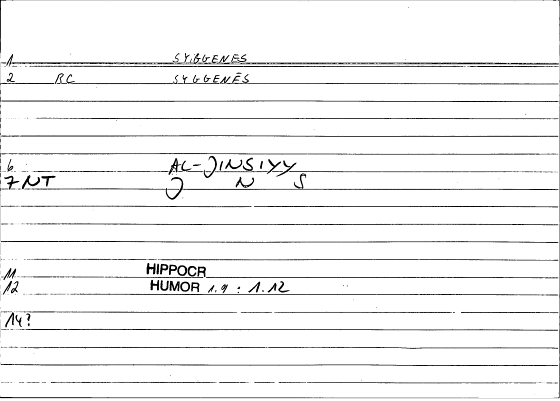 1 SYGGENES
2 RC SYGGENĒS
6 AL-JINSIYY
7 NT J N S
11 HIPPOCR
12 HUMOR 1.9 : 1.12
14?